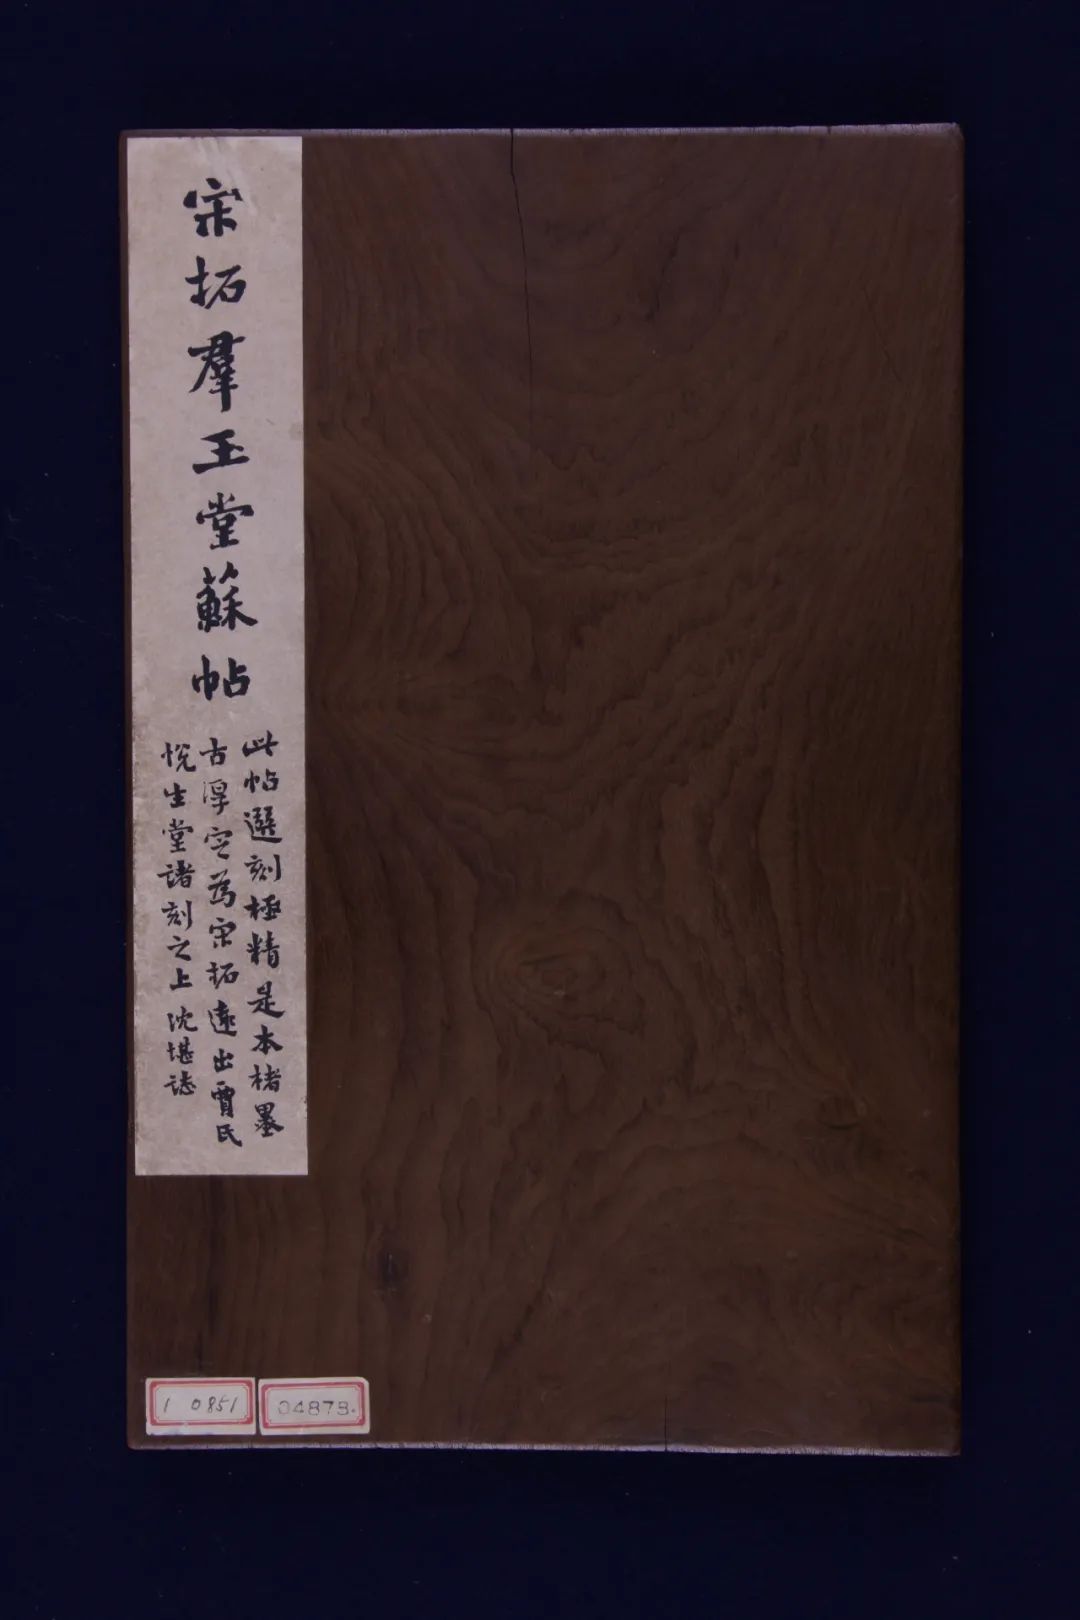 宋拓羣玉堂蘇帖
此帖選刻極精是本楮墨
古厚定為宋拓遠出賈氏
悅生堂諸刻之上 沈堪誌
1 0851
04873.